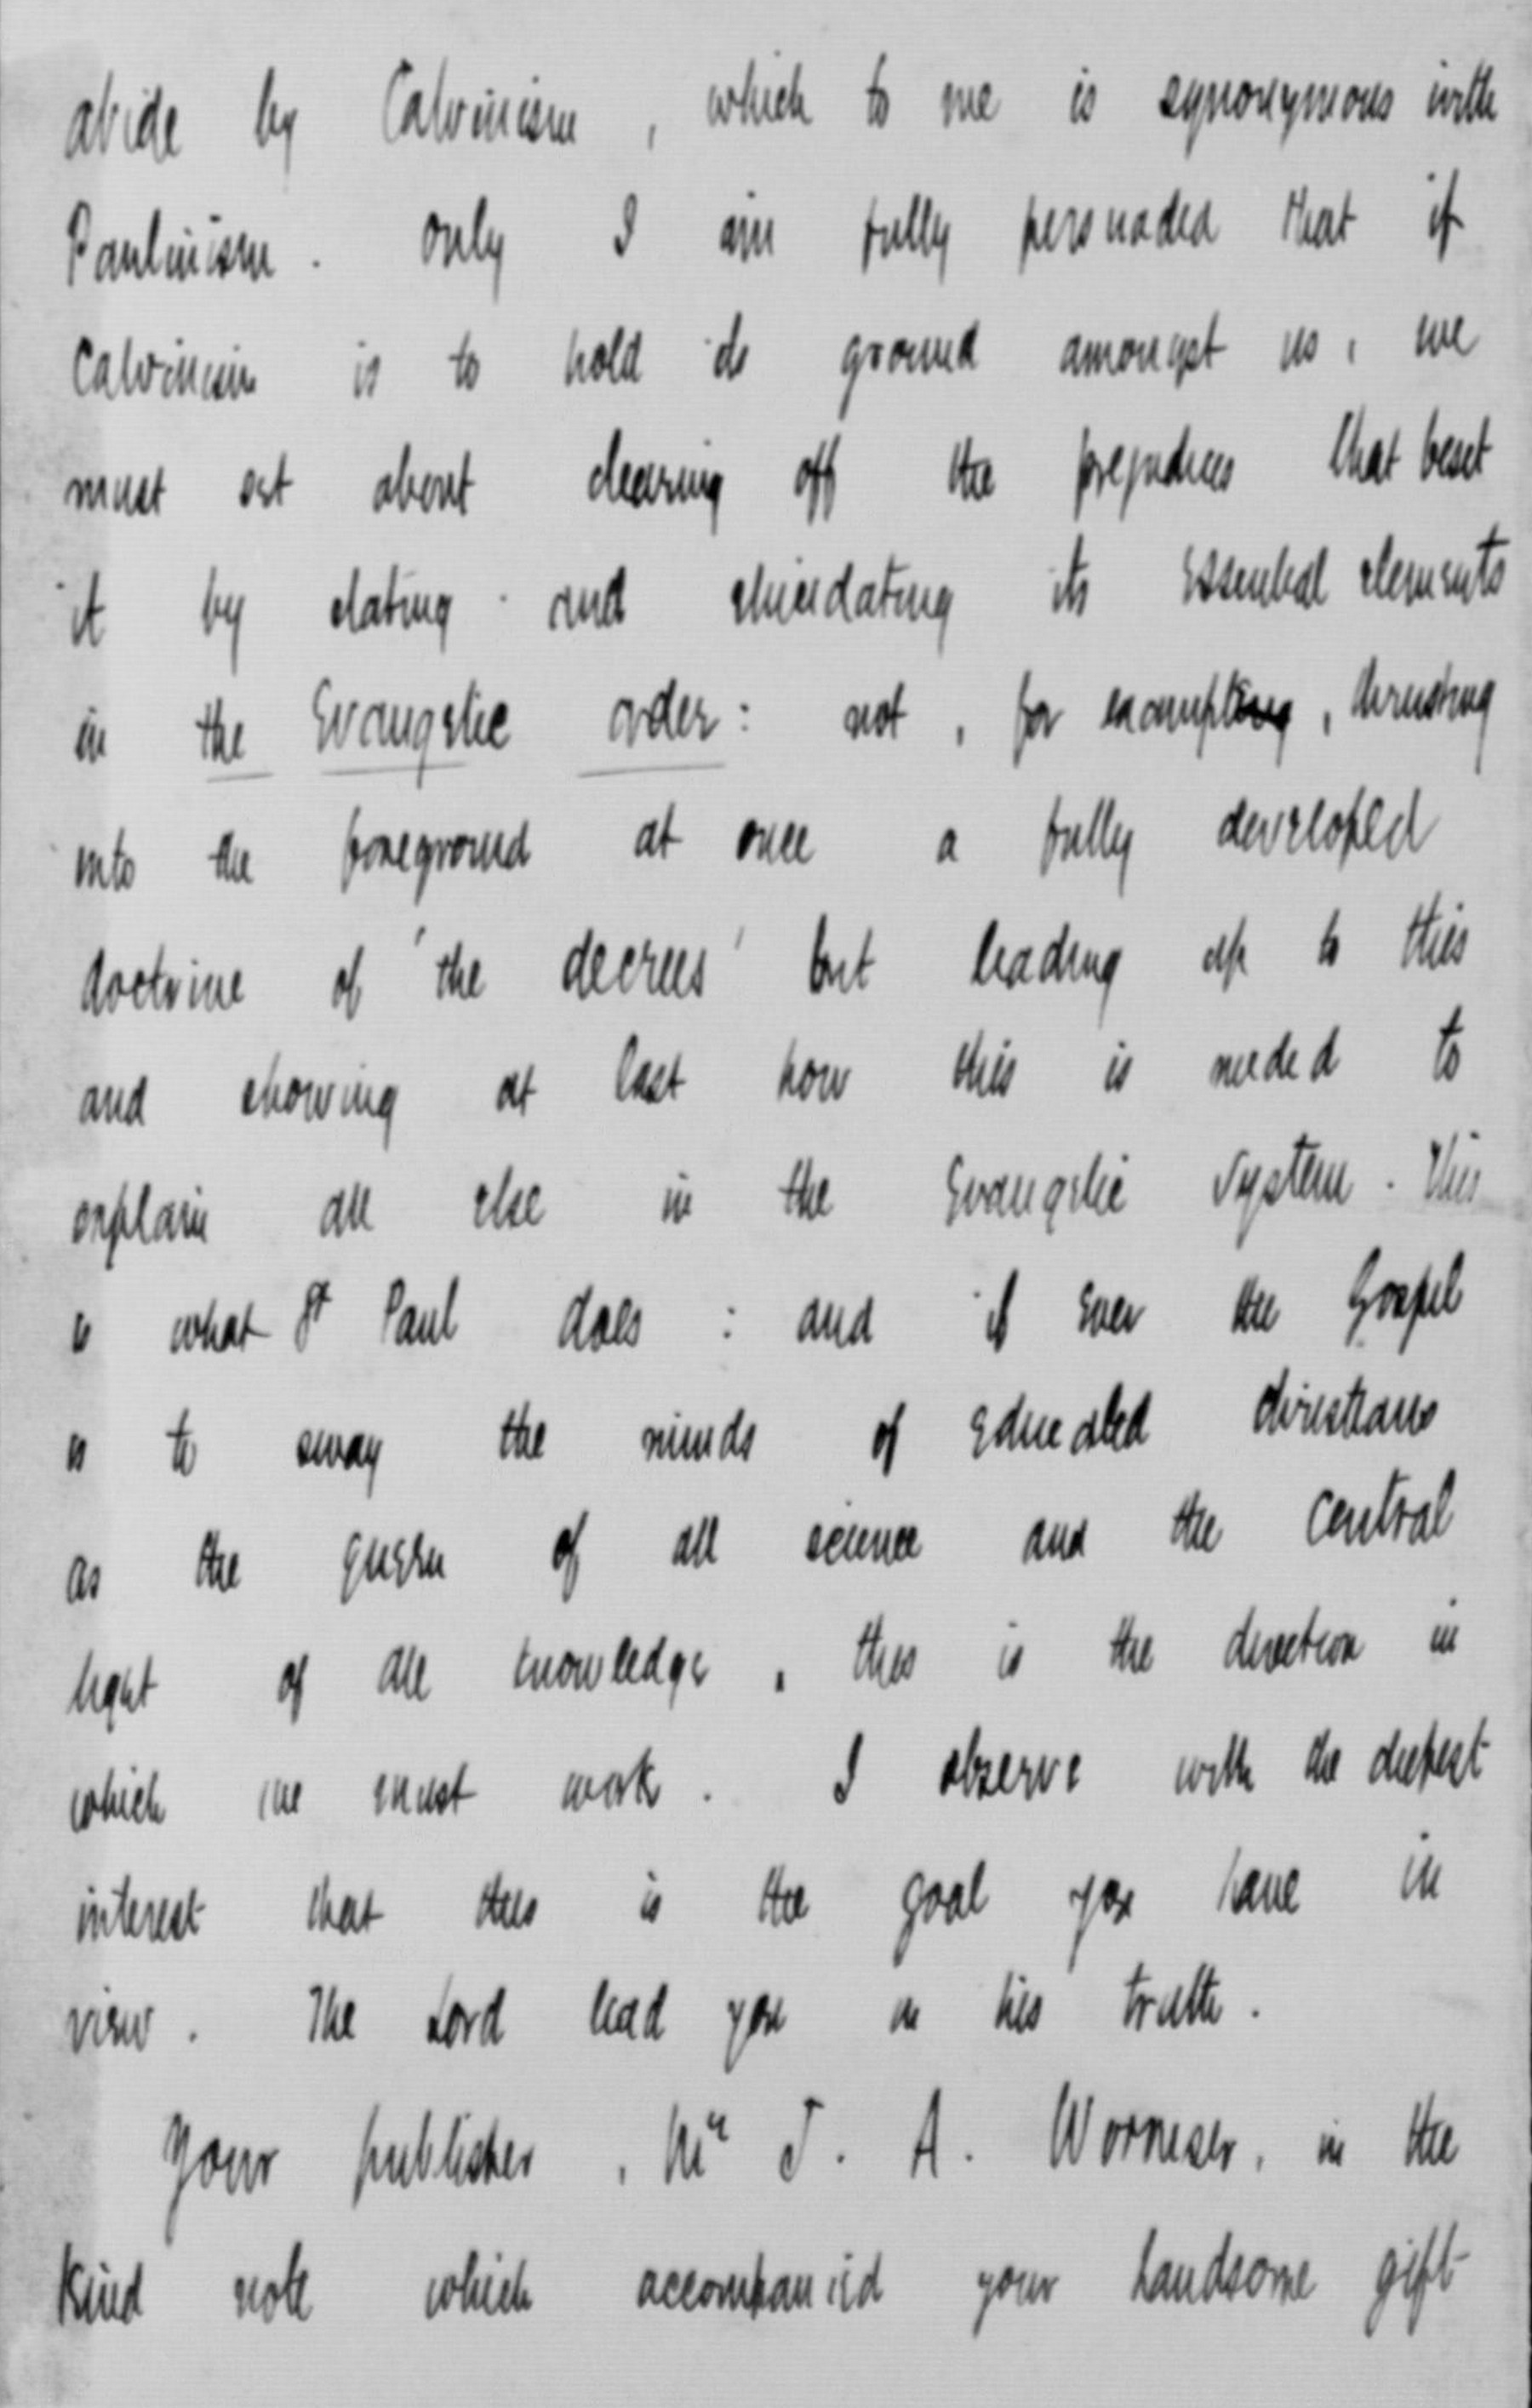 abide by Calvinism, which to me is synonymous with
Paulinism. Only I am fully persuaded that if
Calvinism is to hold its ground amongst us, we
must set about clearing off the prejudices that beset
it by stating and elucidating its essential elements
in the Evangelic order: not, for example, thrusting
into the foreground at once a fully developed
doctrine of 'the decrees' but leading up to this
and showing at last how this is needed to
explain all else in the Evangelic system. This
is what St Paul does: and if ever the Gospel
is to sway the minds of educated Christians
as the queen of all science and the central
light of all knowledge, this is the direction in
which we must work. I observe with the deepest
interest that this is the goal you have in
view. The Lord lead you in his truth.
Your publisher, Mr J. A. Wormser, in the
kind note which accompanied your handsome gift